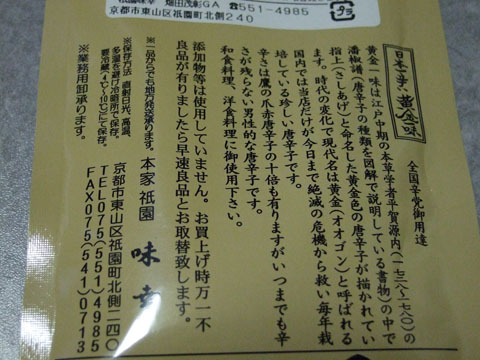 畑田茂彰GA ☎551-4985
京都市東山区祇園町北側240
プラ
日本一辛い黄金一味
全国辛党御用達
黄金一味は江戸中期の本草学者平賀源内(一七二八~八〇)の
潘椒譜(唐辛子の種類を図解で説明している書物)の中で
指上(さしあげ)と命名した黄金色の唐辛子が描かれていま
す。時代の変化で現代名は黄金(オオゴン)と呼ばれる
国内では当店だけが今日まで絶滅の危機から救い毎年栽
培している珍しい唐辛子です。
辛さは鷹の爪赤唐辛子の十倍も有りますがいつまでも辛
さが残らない男性的な唐辛子です。
和食料理、洋食料理に御使用下さい。
添加物等は使用していません。お買上げ時万一不
良品が有りましたら早速良品とお取替致します。
本家祇園 味幸
※一品からでも地方発送承ります。
※保存方法 直射日光、高温、
多湿を避け冷暗所で保存。
要冷蔵(4℃~10℃)にて保存。
京都市東山区祇園町北側二四〇
TEL075(551)4985
FAX075(541)0713
※業務用卸承ります。